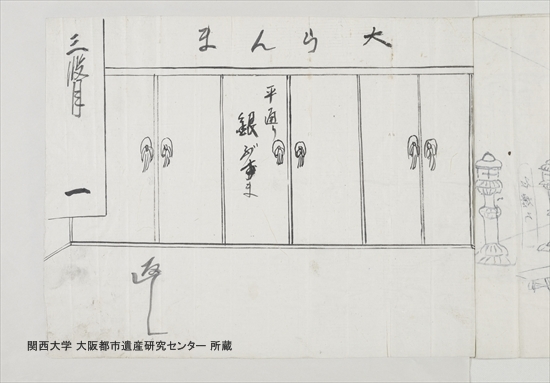 大らんま
三段目
一
平通り
銀ぶすま
返し
関西大学 大阪都市遺産研究センター 所蔵